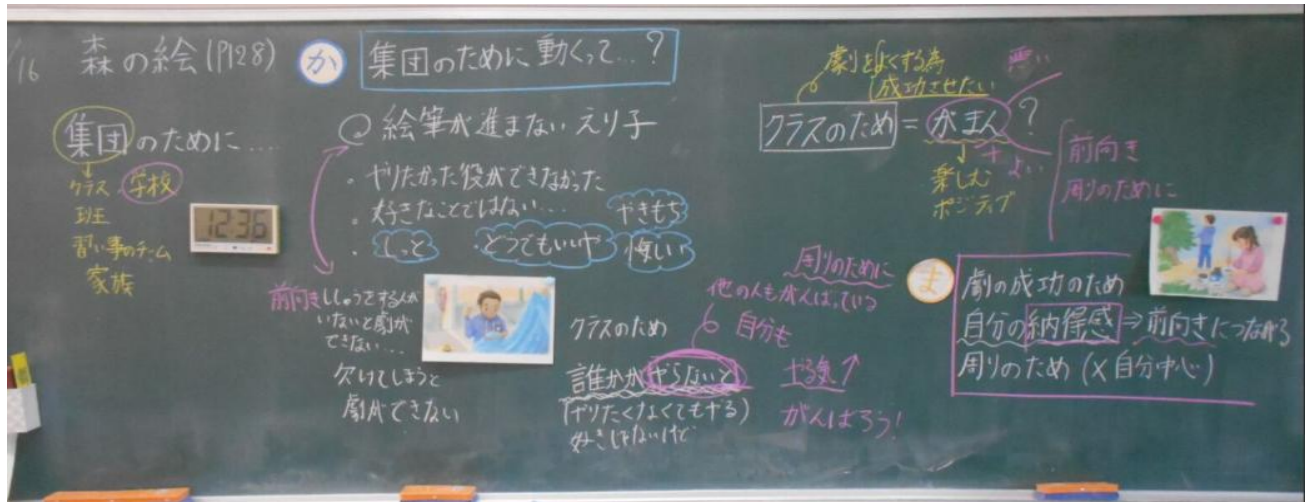 /16 森の絵(P128)
集団のために....
クラス 学校
班
習い事のチーム
家族
12:36
か 集団のために動くって...?
絵筆が進まないえり子
・やりたかった役ができなかった
・好きなことではない...
やきもち
・しっと
・どうでもいいや
悔しい
前向き
ししゅうをする人が
いないと劇が
できない...
欠けてしまうと
劇ができない
クラスのため
誰かがやらないと
(やりたくなくてもやる)
好きじゃないけど
周りのために
他の人もがんばっている
自分も
やる気↑
がんばろう!
劇をよくする為
成功させたい
悪い
クラスのため=がまん?
+
よい
楽しむ
ポジティブ
前向き
周りのために
ま
劇の成功のため
自分の納得感⇒前向きにつながる
周りのため(×自分中心)